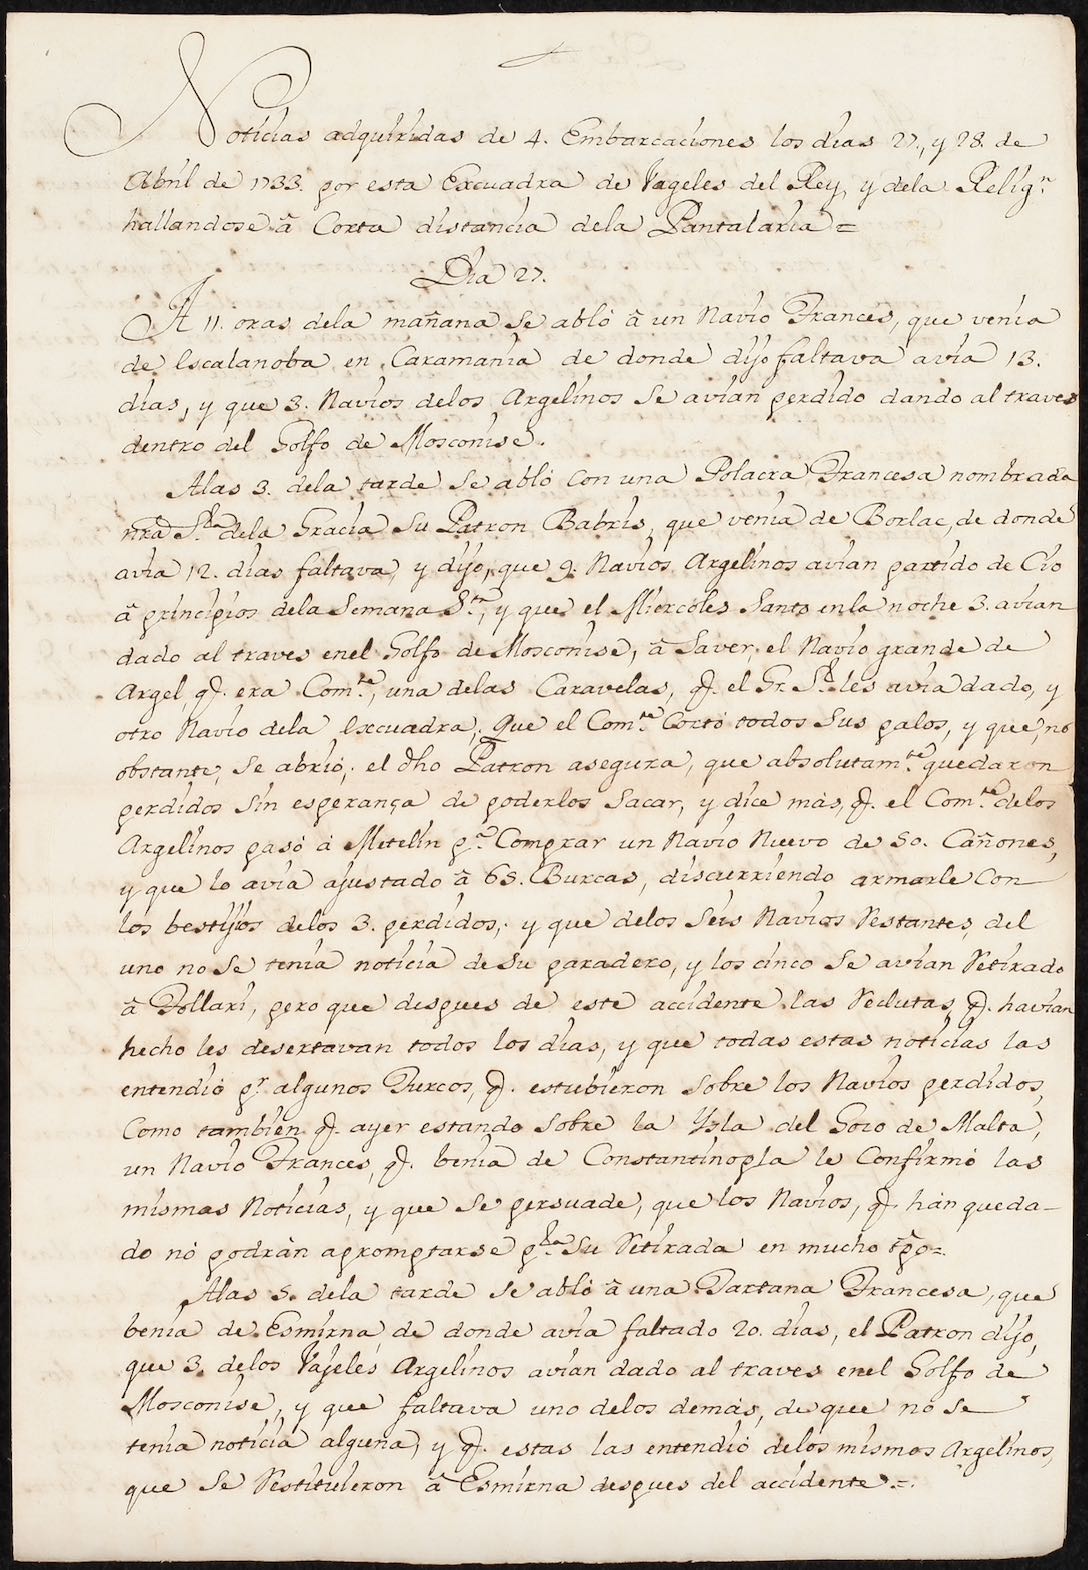 Noticias adquiridas de 4. Embarcaciones los dias 27., y 28. de
Abril de 1733. por esta Excuadra de Vageles del Rey, y dela Relig.n
hallandose â Corta distancia dela Pantalaria =
Dia 27.
A 11. oras dela mañana se abló â un Navio Frances, que venia
de Escalanoba en Caramania de donde dijo faltava avia 13.
dias, y que 3. Navios delos Argelinos se avian perdido dando al traves
dentro del Golfo de Mosconise.
Alas 3. dela tarde se abló con una Polacra Francesa nombrada
nrã S.ra dela Gracia su Patron Babris, que venia de Borlac, de donde
avia 12. dias faltava, y dijo, que 9. Navios Argelinos avian partido de Cio
â principios dela Semana S.ta, y que el Miercoles Santo enla noche 3. avian
dado al traves enel Golfo de Mosconise, â Saver, el Navio grande de
Argel, q.e era Com.te, una delas Caravelas, q.e el Gr. S.r les avia dado, y
otro Navio dela Excuadra; Que el Com.te Cortó todos sus palos, y que, no
obstante, se abrió; el dho Patron asegura, que absolutam.te quedaron
perdidos sin esperança de poderlos sacar, y dice más, q.e el Com.te delos
Argelinos pasó á Metelin p.a Comprar un Navio Nuevo de 50. Cañones,
y que lo avia ajustado â 65. Burcas, discurriendo armarle con
los bestijos delos 3. perdidos; y que delos seis Navios Restantes, del
uno no se tenia noticia de su paradero, y los cinco se avian Retirado
â Follari, pero que despues de este accidente las Reclutas q.e havian
hecho les desertavan todos los dias, y que todas estas noticias las
entendió p.r algunos Turcos, q.e estubieron sobre los Navios perdidos,
Como tambien q.e ayer estando sobre la Ysla del Goio de Malta,
un Navio Frances, q.e benia de Constantinopla le Confirmó las
mismas Noticias, y que se persuade, que los Navios, q.e hán queda-
do nó podrán apromptarse p.ra su Retirada en mucho tp̃o =.
Alas 5. dela tarde se abló â una Tartana Francesa, que
benia de Esmirna de donde avia faltado 20. dias, el Patron dijo,
que 3. delos Vajeles Argelinos avian dado al traves enel Golfo de
Mosconise, y que faltava uno delos demás, de que nó se
tenia noticia alguna, y q.e estas las entendió delos mismos Argelinos,
que se Restituieron â Esmirna despues del accidente =.